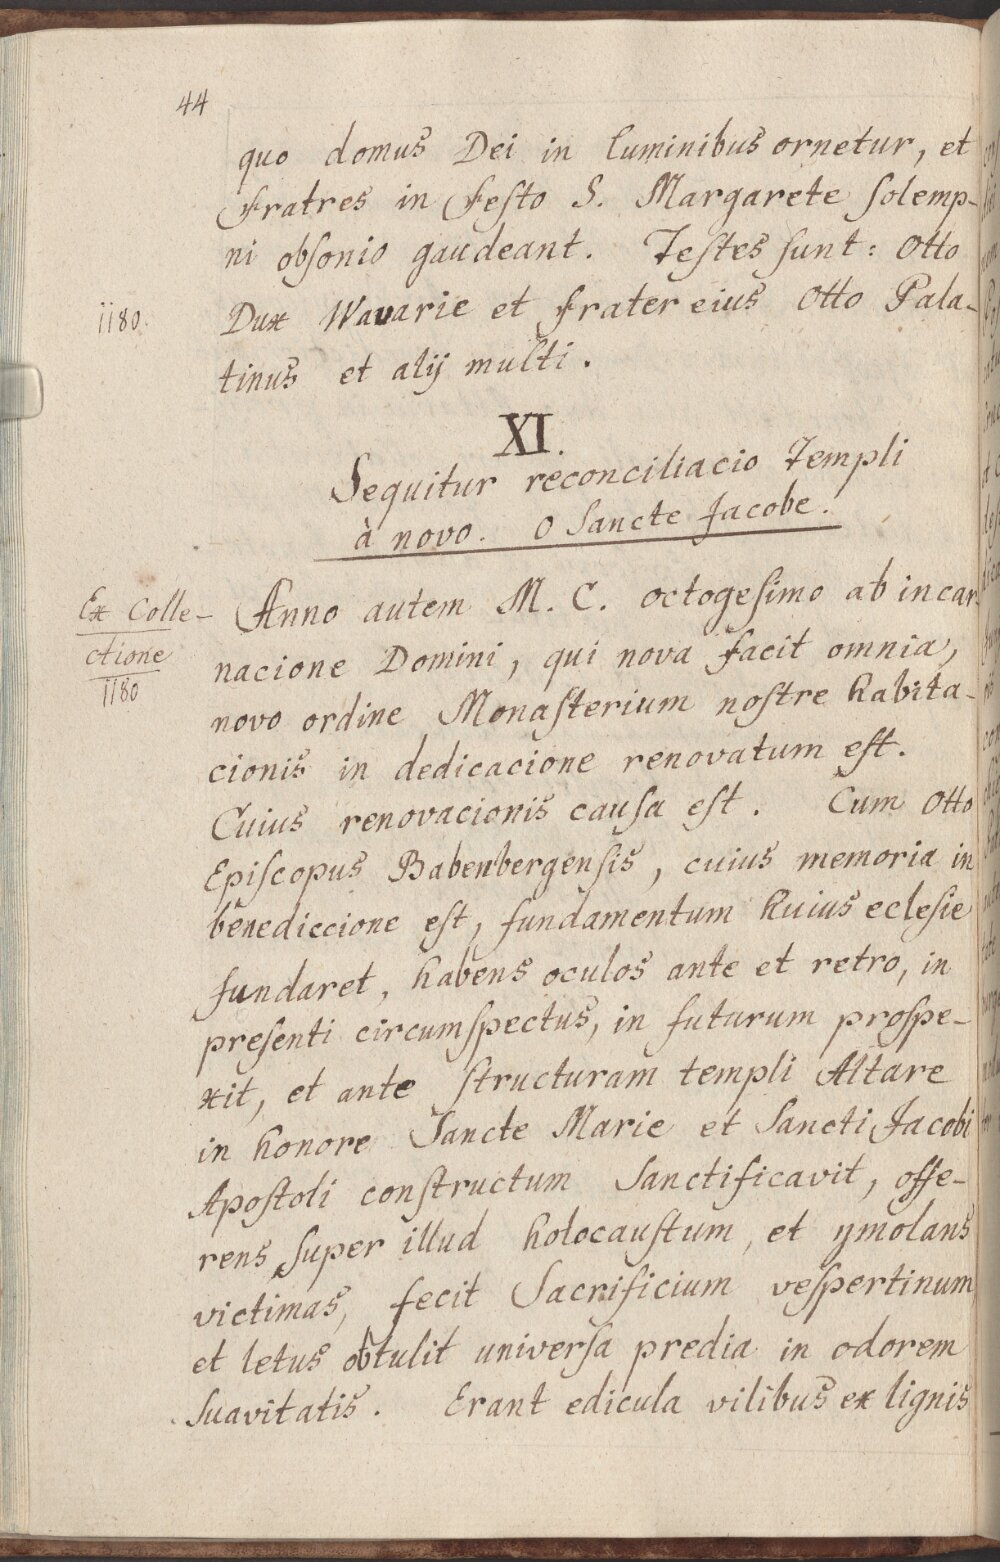 44
quo domus Dei in luminibus ornetur, et
fratres in festo S. Margarete solemp-
ni obsonio gaudeant. Testes sunt: Otto
1180.
Dux Wavarie et frater eius Otto Pala-
tinus et alij multi.
XI.
Sequitur reconciliacio Templi
à novo. O Sancte Jacobe.
Ex Colle-
ctione
1180
Anno autem M. C. octogesimo ab incar-
nacione Domini, qui nova facit omnia,
novo ordine Monasterium nostre habita-
cionis in dedicacione renovatum est.
Cuius renovacionis causa est. Cum Otto
Episcopus Babenbergensis, cuius memoria in
benediccione est, fundamentum huius eclesie
fundaret, habens oculos ante et retro, in
presenti circumspectus, in futurum prospe-
xit, et ante structuram templi Altare
in honore Sancte Marie et Sancti Jacobi
Apostoli constructum Sanctificavit, offe-
rens super illud holocaustum, et ymolans
victimas, fecit Sacrificium vespertinum
et letus obtulit universa predia in odorem
suavitatis. Erant edicula vilibus ex lignis